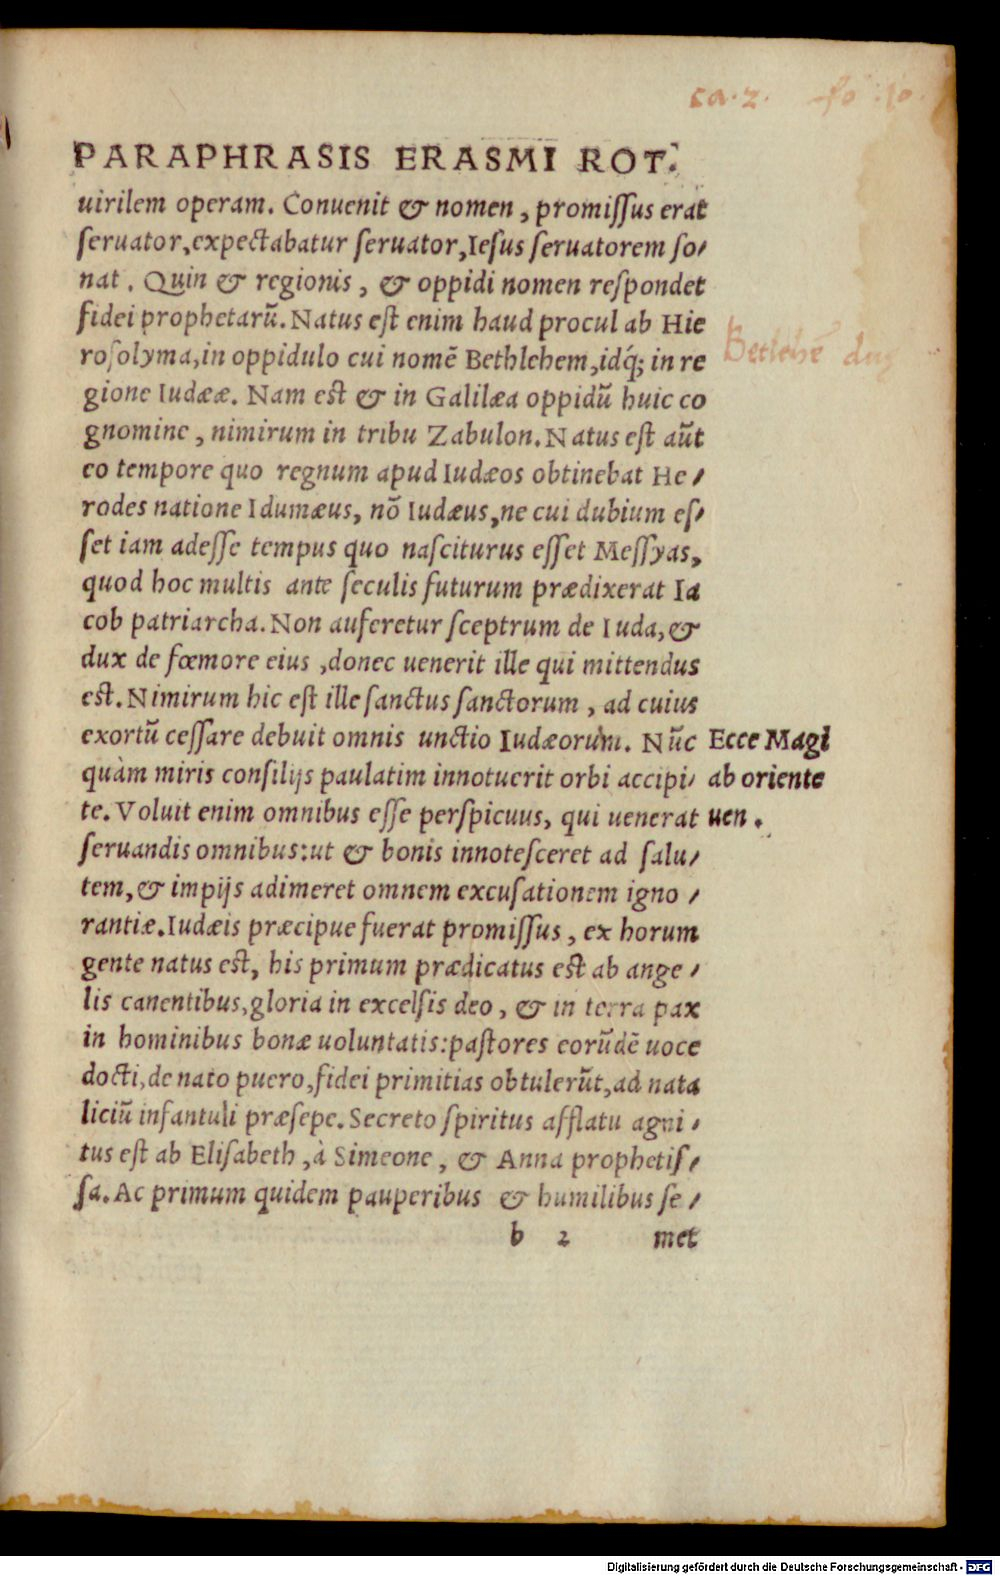 ca. 2. fo. 10.
PARAPHRASIS ERASMI ROT.
uirilem operam. Conuenit & nomen, promiſſus erat
ſeruator, expectabatur ſeruator, Ieſus ſeruatorem ſo/
nat. Quin & regionis, & oppidi nomen reſpondet
fidei prophetarũ. Natus eſt enim haud procul ab Hie
roſolyma, in oppidulo cui nomẽ Bethlehem, idq́; in re
Betlehẽ
gione Iudææ. Nam eſt & in Galilæa oppidũ huic co
gnomine, nimirum in tribu Zabulon. Natus eſt aũt
eo tempore quo regnum apud Iudæos obtinebat He/
rodes natione Idumæus, nõ Iudæus, ne cui dubium eſ/
ſet iam adeſſe tempus quo naſciturus eſſet Meſſyas,
quod hoc multis ante ſeculis futurum prædixerat Ia
cob patriarcha. Non auferetur ſceptrum de Iuda, &
dux de fœmore eius, donec uenerit ille qui mittendus
eſt. Nimirum hic eſt ille ſanctus ſanctorum, ad cuius
exortũ ceſſare debuit omnis unctio Iudæorum. Nũc
Ecce Magi
quàm miris conſilijs paulatim innotuerit orbi accipi/
ab oriente
te. Voluit enim omnibus eſſe perſpicuus, qui uenerat
uen.
ſeruandis omnibus: ut & bonis innoteſceret ad ſalu/
tem, & impijs adimeret omnem excuſationem igno/
rantiæ. Iudæis præcipue fuerat promiſſus, ex horum
gente natus eſt, his primum prædicatus eſt ab ange/
lis canentibus, gloria in excelſis deo, & in terra pax
in hominibus bonæ uoluntatis: paſtores eorũdẽ uoce
docti, de nato puero, fidei primitias obtulerũt, ad nata
liciũ infantuli præſepe. Secreto ſpiritus afflatu agni/
tus eſt ab Eliſabeth, à Simeone, & Anna prophetiſ/
ſa. Ac primum quidem pauperibus & humilibus ſe/
b 2 met
Digitalisierung gefördert durch die Deutsche Forschungsgemeinschaft - DFG